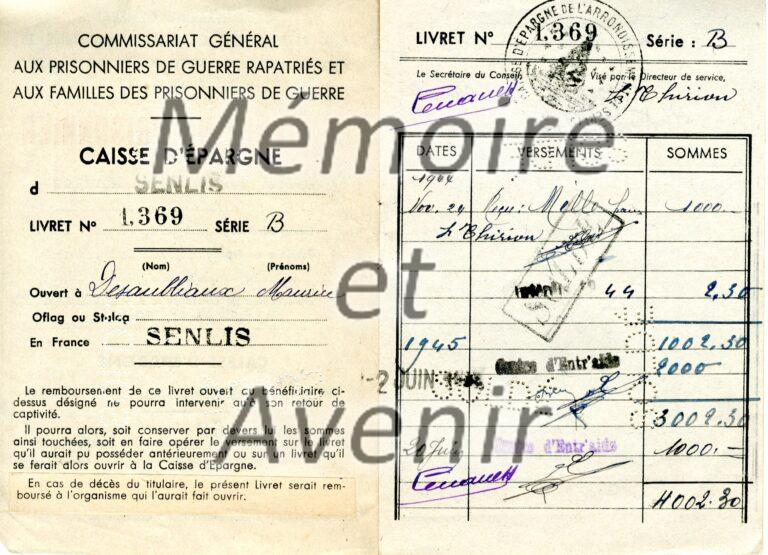 COMMISSARIAT GÉNÉRAL
AUX PRISONNIERS DE GUERRE RAPATRIÉS ET
AUX FAMILLES DES PRISONNIERS DE GUERRE
CAISSE D'ÉPARGNE
d SENLIS
LIVRET N° 1,369 SÉRIE B
(Nom) (Prénoms)
Ouvert à Desaubliaux Maurice
Oflag ou Stalag
En France SENLIS
Le remboursement de ce livret ouvert au bénéficiaire ci-
dessus désigné ne pourra intervenir qu'à son retour de
captivité.
Il pourra alors, soit conserver par devers lui les sommes
ainsi touchées, soit en faire opérer le versement sur le livret
qu'il aurait pu posséder antérieurement ou sur un livret qu'il
se ferait alors ouvrir à la Caisse d'Epargne.
En cas de décès du titulaire, le présent Livret serait rem-
boursé à l'organisme qui l'aurait fait ouvrir.
CAISSE D'ÉPARGNE DE L'ARRONDISSEMENT
LIVRET N° 1,369 Série : B
Le Secrétaire du Conseil, Visé par le Directeur de service,
h Thirion
DATES VERSEMENTS SOMMES
1944
Nov. 24 Mille 1000.-
h Thirion
44 2,30
1945 1002.30
Centre d'Entr'aide 2000
-2 JUIN
3002.30
20 Juin Centre d'Entr'aide 1000.-
4002.30
Mémoire
et
Avenir